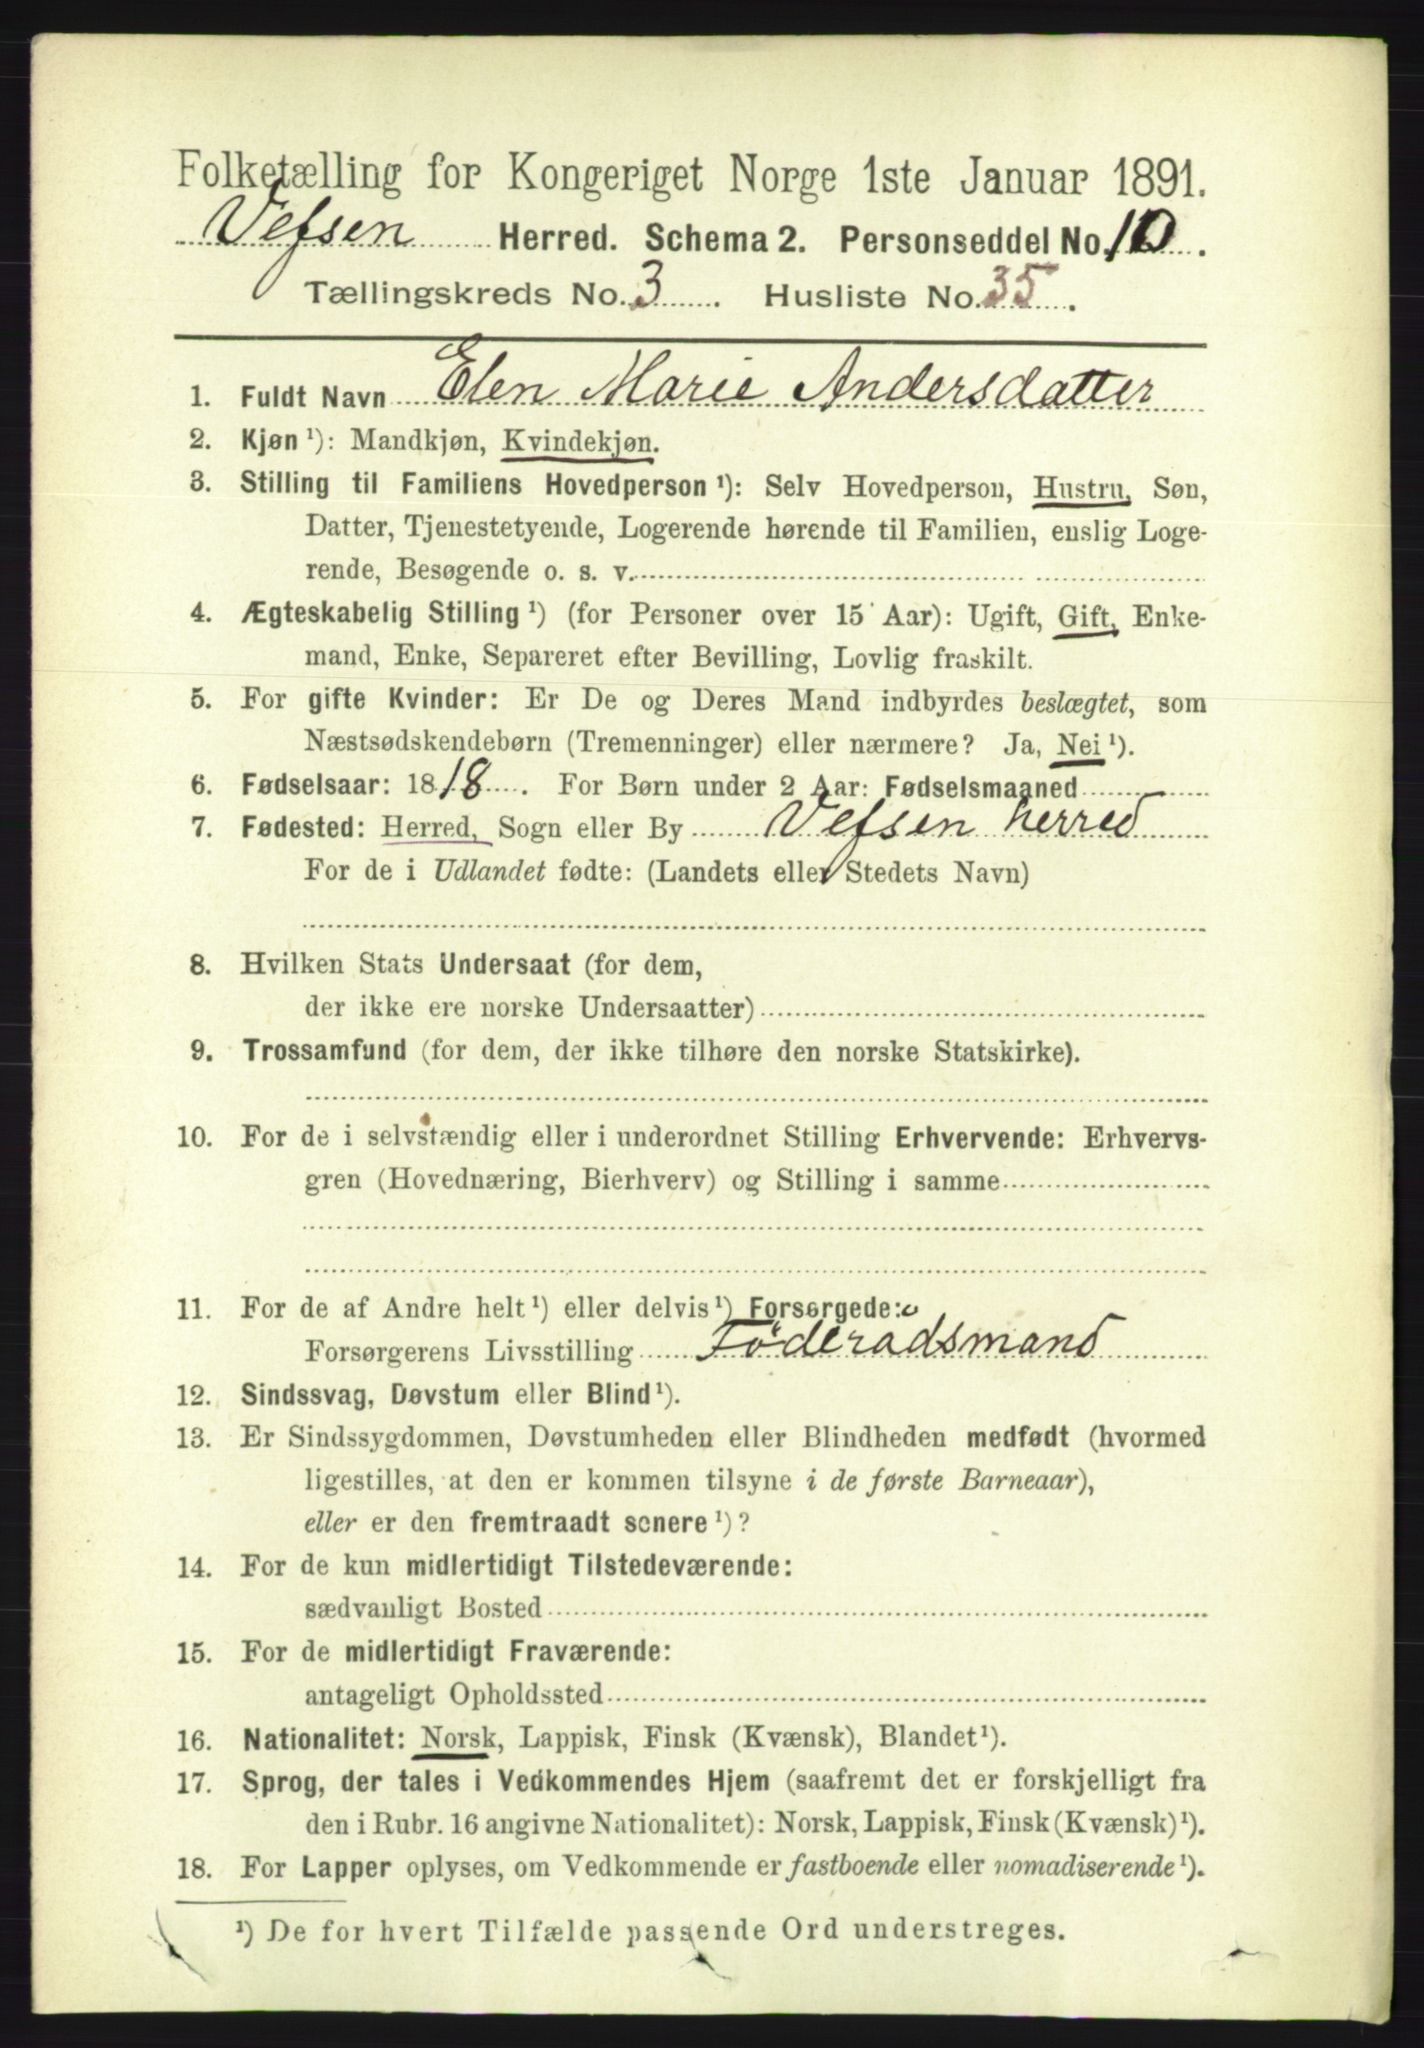 Folketælling for Kongeriget Norge 1ste Januar 1891.
Vefsen Herred. Schema 2. Personseddel No. 10.
Tællingskreds No. 3. Husliste No. 35.
1. Fuldt Navn Elen Marie Andersdatter
2. Kjøn ¹): Mandkjøn, Kvindekjøn.
3. Stilling til Familiens Hovedperson ¹): Selv Hovedperson, Hustru, Søn,
Datter, Tjenestetyende, Logerende hørende til Familien, enslig Loge-
rende, Besøgende o. s. v.
4. Ægteskabelig Stilling ¹) (for Personer over 15 Aar): Ugift, Gift, Enke-
mand, Enke, Separeret efter Bevilling, Lovlig fraskilt.
5. For gifte Kvinder: Er De og Deres Mand indbyrdes beslægtet, som
Næstsødskendebørn (Tremenninger) eller nærmere? Ja, Nei ¹).
6. Fødselsaar: 1818. For Børn under 2 Aar: Fødselsmaaned
7. Fødested: Herred, Sogn eller By Vefsen herred
For de i Udlandet fødte: (Landets eller Stedets Navn)
8. Hvilken Stats Undersaat (for dem,
der ikke ere norske Undersaatter)
9. Trossamfund (for dem, der ikke tilhøre den norske Statskirke).
10. For de i selvstændig eller i underordnet Stilling Erhvervende: Erhvervs-
gren (Hovednæring, Bierhverv) og Stilling i samme
11. For de af Andre helt ¹) eller delvis ¹) Forsørgede:
Forsørgerens Livsstilling Föderadsmand
12. Sindssvag, Døvstum eller Blind ¹).
13. Er Sindssygdommen, Døvstumheden eller Blindheden medfødt (hvormed
ligestilles, at den er kommen tilsyne i de første Barneaar),
eller er den fremtraadt senere ¹)?
14. For de kun midlertidigt Tilstedeværende:
sædvanligt Bosted
15. For de midlertidigt Fraværende:
antageligt Opholdssted
16. Nationalitet: Norsk, Lappisk, Finsk (Kvænsk), Blandet ¹).
17. Sprog, der tales i Vedkommendes Hjem (saafremt det er forskjelligt fra
den i Rubr. 16 angivne Nationalitet): Norsk, Lappisk, Finsk (Kvænsk) ¹).
18. For Lapper oplyses, om Vedkommende er fastboende eller nomadiserende ¹).
¹) De for hvert Tilfælde passende Ord understreges.